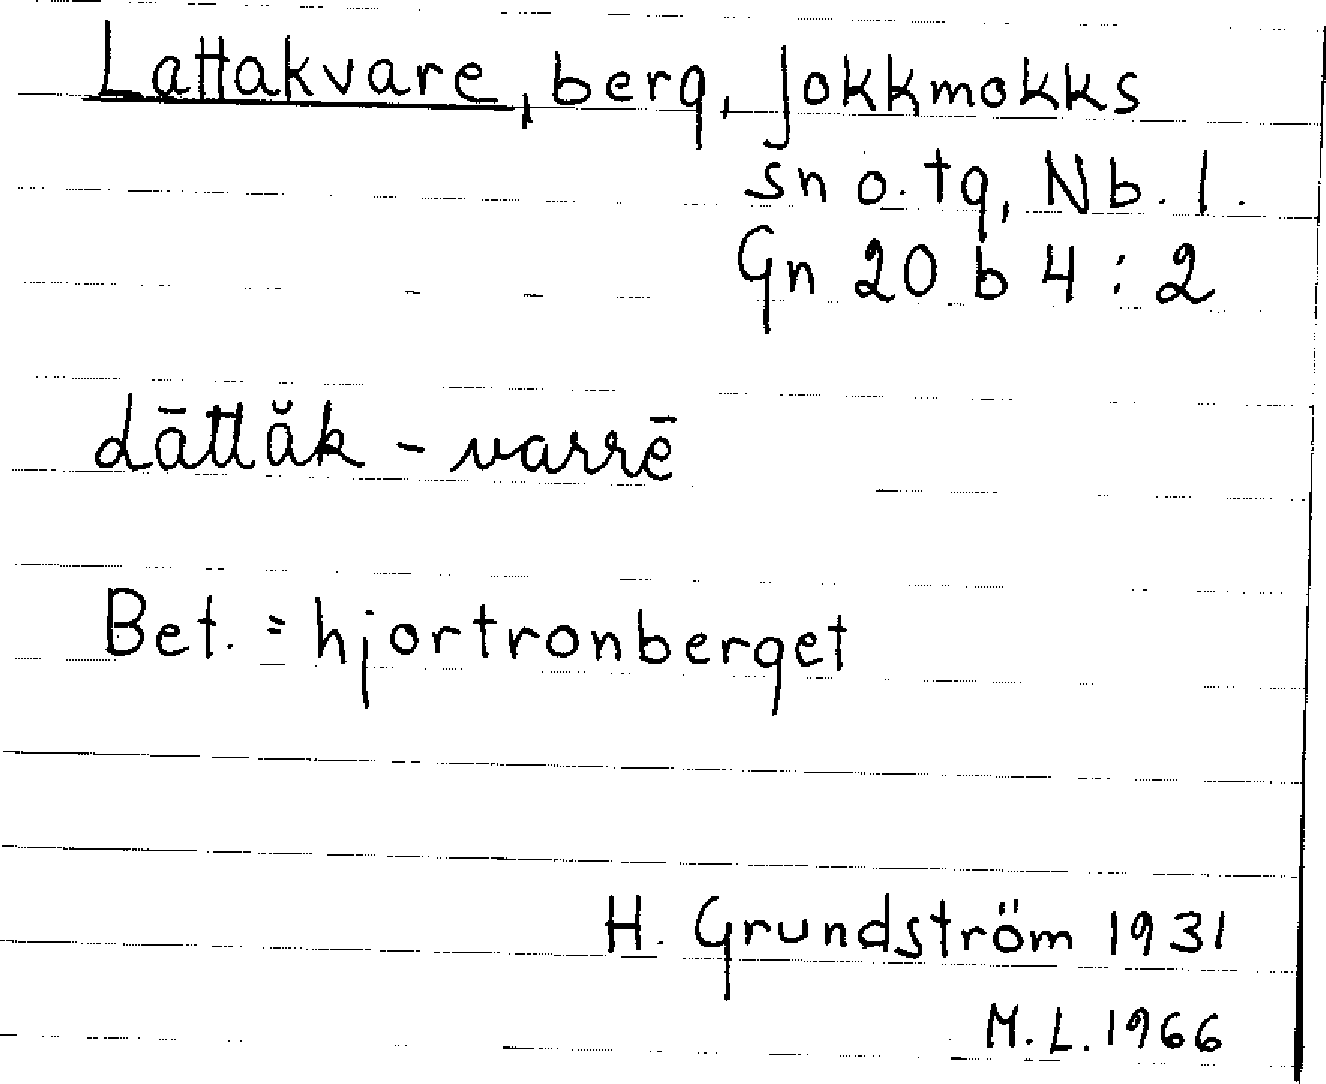 Lattakvare, berg, Jokkmokks
sn o. tg, Nb. l.
Gn 20 b 4 : 2
Lāttăk - varrē
Bet. = hjortronberget
H. Grundström 1931
M. L. 1966